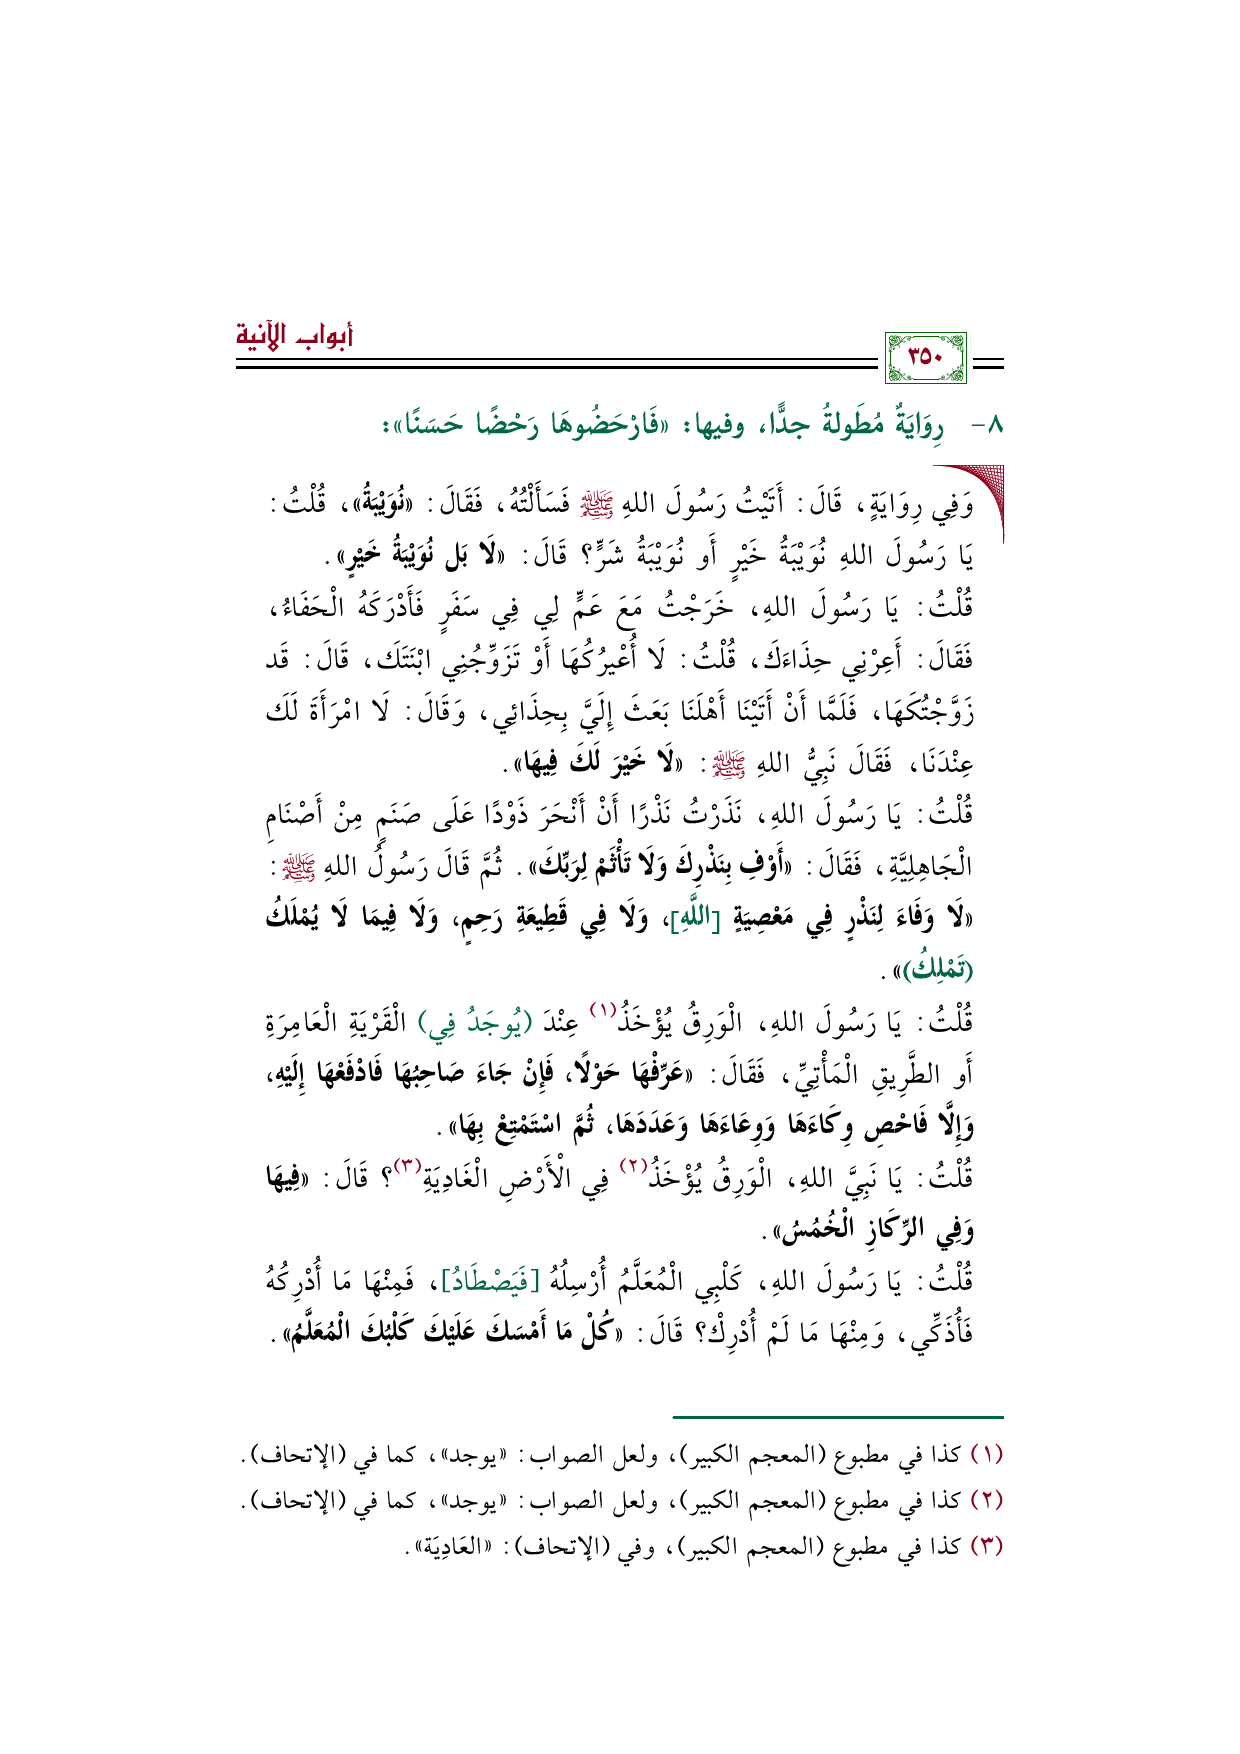 أبواب الآنية
٣٥٠
٨- رِوَايَةٌ مُطَولةُ جدًّا، وفيها: «فَارْحَضُوهَا رَحْضًا حَسَنًا»:
وَفِي رِوَايَةٍ، قَالَ: أَتَيْتُ رَسُولَ اللهِ ﷺ فَسَأَلْتُهُ، فَقَالَ: «نُوَيْبَةُ»، قُلْتُ:
يَا رَسُولَ اللهِ نُوَيْبَةُ خَيْرٍ أَو نُوَيْبَةُ شَرٍّ؟ قَالَ: «لَا بَل نُوَيْبَةُ خَيْرٍ».
قُلْتُ: يَا رَسُولَ اللهِ، خَرَجْتُ مَعَ عَمٍّ لِي فِي سَفَرٍ فَأَدْرَكَهُ الْحَفَاءُ،
فَقَالَ: أَعِرْنِي حِذَاءَكَ، قُلْتُ: لَا أُعْيرُكُهَا أَوْ تَزَوِّجُنِي ابْنَتَكَ، قَالَ: قَد
زَوَّجْتُكَهَا، فَلَمَّا أَنْ أَتَيْنَا أَهْلَنَا بَعَثَ إِلَيَّ بِحِذَائِي، وَقَالَ: لَا امْرَأَةَ لَكَ
عِنْدَنَا، فَقَالَ نَبِيُّ اللهِ ﷺ: «لَا خَيْرَ لَكَ فِيهَا».
قُلْتُ: يَا رَسُولَ اللهِ، نَذَرْتُ نَذْرًا أَنْ أَنْحَرَ ذَوْدًا عَلَى صَنَمٍ مِنْ أَصْنَامِ
الْجَاهِلِيَّةِ، فَقَالَ: «أَوْفِ بِنَذْرِكَ وَلَا تَأْثَمْ لِرَبِّكَ». ثُمَّ قَالَ رَسُولُ اللهِ ﷺ:
«لَا وَفَاءَ لِنَذْرٍ فِي مَعْصِيَةٍ [اللَّهِ]، وَلَا فِي قَطِيعَةِ رَحِمٍ، وَلَا فِيمَا لَا يُمْلَكُ
(تَمْلِكُ)».
قُلْتُ: يَا رَسُولَ اللهِ، الْوَرِقُ يُؤْخَذُ(١) عِنْدَ (يُوجَدُ فِي) الْقَرْيَةِ الْعَامِرَةِ
أَو الطَّرِيقِ الْمَأْتِيِّ، فَقَالَ: «عَرِّفْهَا حَوْلًا، فَإِنْ جَاءَ صَاحِبُهَا فَادْفَعْهَا إِلَيْهِ،
وَإِلَّا فَاحْصِ وِكَاءَهَا وَوِعَاءَهَا وَعَدَدَهَا، ثُمَّ اسْتَمْتِعْ بِهَا».
قُلْتُ: يَا نَبِيَّ اللهِ، الْوَرِقُ يُؤْخَذُ(٢) فِي الْأَرْضِ الْغَادِيَةِ(٣)؟ قَالَ: «فِيهَا
وَفِي الرِّكَازِ الْخُمُسُ».
قُلْتُ: يَا رَسُولَ اللهِ، كَلْبِي الْمُعَلَّمُ أُرْسِلُهُ [فَيَصْطَادُ]، فَمِنْهَا مَا أُدْرِكُهُ
فَأُذَكِّي، وَمِنْهَا مَا لَمْ أُدْرِكْ؟ قَالَ: «كُلْ مَا أَمْسَكَ عَلَيْكَ كَلْبُكَ الْمُعَلَّمُ».
(١) كذا في مطبوع (المعجم الكبير)، ولعل الصواب: «يوجد»، كما في (الإتحاف).
(٢) كذا في مطبوع (المعجم الكبير)، ولعل الصواب: «يوجد»، كما في (الإتحاف).
(٣) كذا في مطبوع (المعجم الكبير)، وفي (الإتحاف): «العَادِيَة».